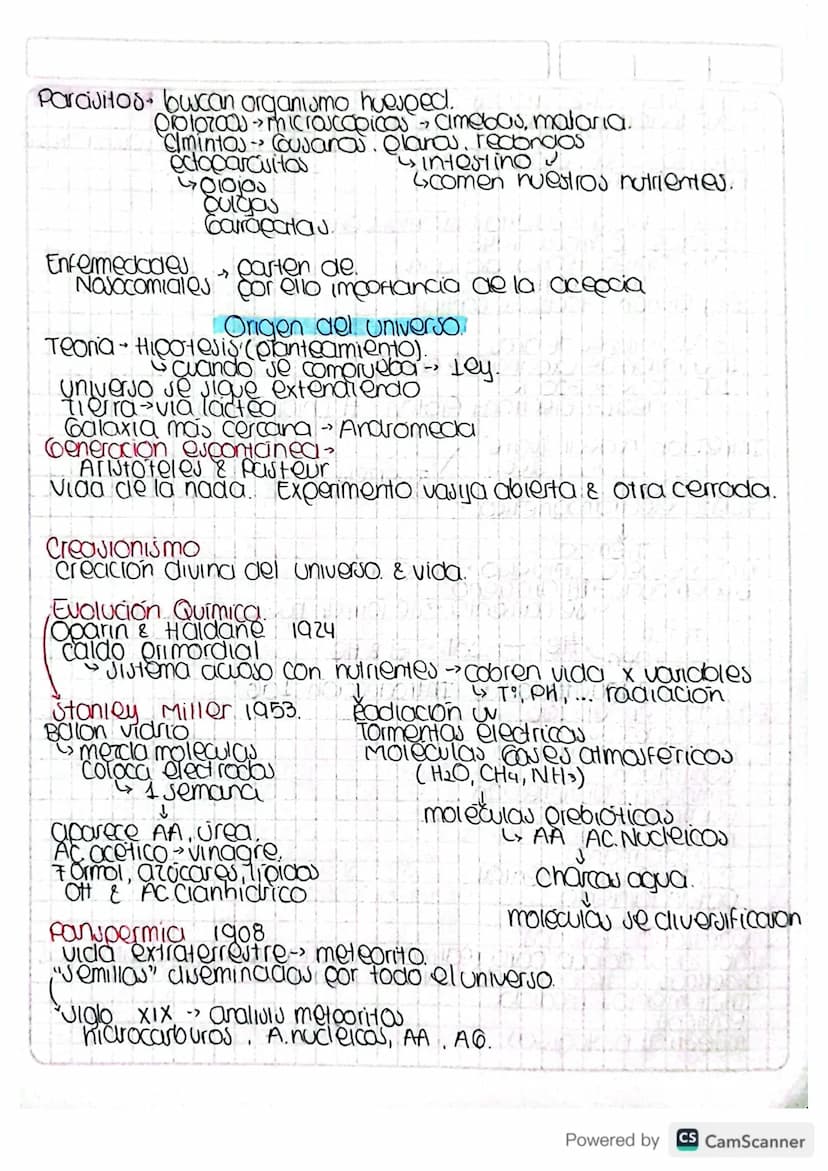 Parásitos→ buscan organismo huesped.
Protozoos→microscópicos → amebas, malaria.
Elmintos→ Gusanos. planos, redondos
ectoparásitos ↳ intestino
↳ piojos ↳comen nuestros nutrientes.
pulgas
Garrapatas.
Enfermedades → parten de.
Nosocomiales por ello importancia de la acepcia
Origen del universo
Teoria → Hipotesis (planteamiento).
↳ cuando se comprueba → Ley.
universo se sigue extendiendo
Tierra→via láctea
Galaxia más cercana → Andromeda
Generación espontánea→
Aristoteles & Pasteur
vida de la nada. Experimento vasija abierta & otra cerrada.
Creasionismo
creación divina del universo & vida.
Evolución Química.
Oparin & Haldane 1924
caldo primordial
↳ sistema acuoso con nutrientes → cobren vida x variables
↓ ↳ T°, PH, ... radiación
Stanley Miller 1953. Radiación uv
Balon vidrio Tormentas eléctricas
↳ mezcla moleculas Moléculas Gases atmosféricos
coloca electrodos (H2O, CH4, NH3)
↳ 1 semana ↓
↓ moléculas prebióticas
aparece AA, urea, ↳ AA AC.Nucleicos
AC acético→vinagre, ↓
Formol, azúcares, lípidos charcos agua.
OH & AC Cianhídrico ↓
moléculas se diversificaron
Panspermia 1908
vida extraterrestre→ meteorito.
"semillas" diseminadas por todo el universo.
siglo XIX → analisis meteoritos
hidrocarburos, A.nucleicos, AA, AG.
Powered by CS CamScanner